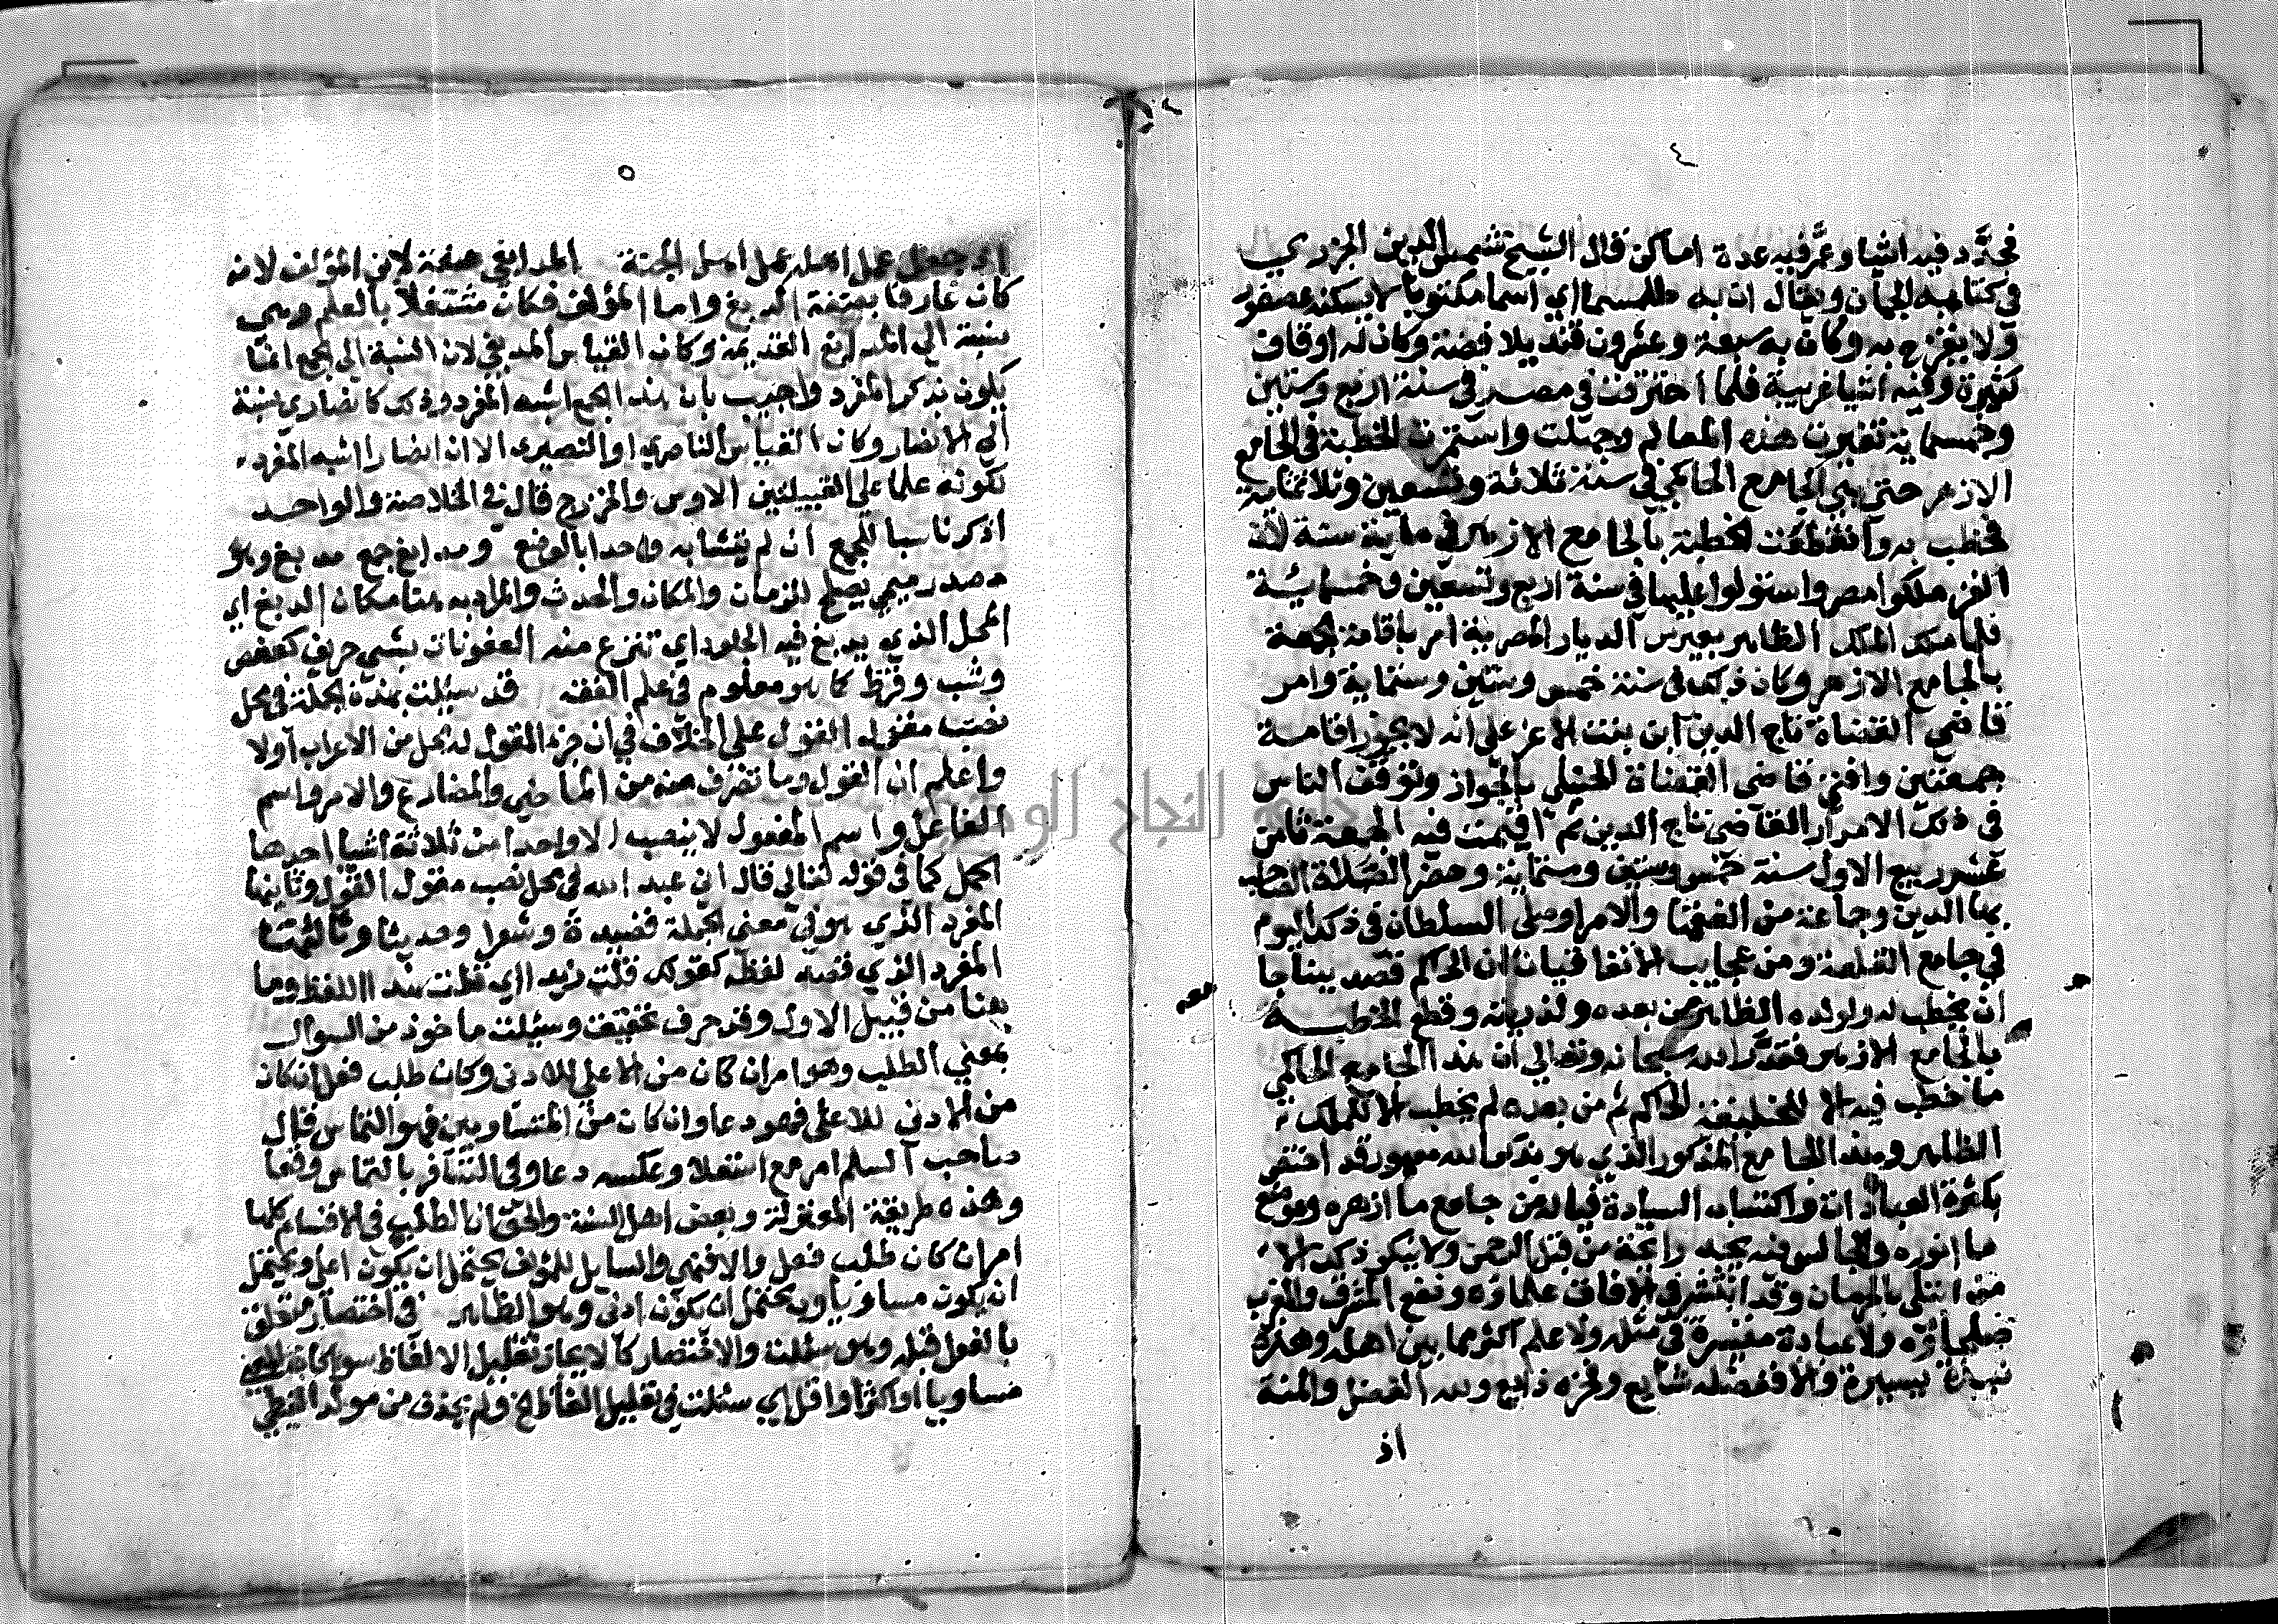 ٤
فجدد فيه اشيا وعمر فيه عدة اماكن قال الشيخ شمس الدين الجزري
في كتابه الجمان ويقال ان به طلسما اي اسما مكتوبا لا يسكنه عصفور
ولا يفرخ به وكان به سبعة وعشرون قنديلا فضة وكان له اوقاف
كثيرة وفيه اشيا غريبة فلما احترقت في مصر في سنة اربع وستين
وخمسماية تغيرت هذه المعالم وجهلت واستمرت الخطبة في الجامع
الازهر حتى بني الجامع الحاكمي في سنة ثلاثة وتسعين وثلاثماية
فخطب به وانقطعت الخطبة بالجامع الازهر في ماية سنة لان
الغز ملكوا مصر واستولوا عليها في سنة اربع وتسعين وخمسمائة
فلما ملك الملك الظاهر بيبرس الديار المصرية امر باقامة الجمعة
بالجامع الازهر وكان ذلك في سنة خمس وستين وستماية وامر
قاضي القضاة تاج الدين ابن بنت الاعز على انه لا يجوز اقامة
جمعتين وافتى قاضي القضاة الحنبلي بالجواز وتوقف الناس
في ذلك الامر القاضي تاج الدين ثم اقيمت فيه الجمعة ثامن
عشر ربيع الاول سنة خمس وستين وستماية وحضر الصلاة الصاحب
بها الدين وجماعة من الفقها والامرا وصلى السلطان في ذلك اليوم
في جامع القلعة ومن عجايب الاتفاقيات ان الحاكم قصد ببناجا
ان يخطب له ولولده الظاهر من بعده ولذريته وقطع الخطبة
بالجامع الازهر فقدر الله سبحانه وتعالى ان هذا الجامع الحاكمي
ما خطب فيه الا للخليفة الحاكم ثم من بعده لم يخطب الا للملك
الظاهر وهذا الجامع المذكور الذي هو بذكر الله معمور قد اختفى
بكثرة العبادات واكتساب السيادة فياله من جامع ما ازهره وموضع
ما انوره والجالس فيه يجد رايحة من قبل الرحمن ولا ينكر ذلك الا
من ابتلي بالحرمان وقد انتشر في الافاق علماؤه ونفع المشرق والمغرب
صلحاؤه ولا عبادة مفسرة في مثله ولا علم اكثر مما بين اهله وهذه
نبذة يسيرة والا ففضله شايع وفخره ذايع ولله الفضل والمنة
اذ
٥
اذ جعل عمل اهله عمل اهل الجنة المدابغي صفة لابن المؤلف لانه
كان عارفا بصنعة الدبغ واما المؤلف فكان مشتغلا بالعلم وهي
نسبة الى المدابغ القديمة وكان القياس المدبغي لان النسبة الى الجمع انما
يكون بذكر المفرد واجيب بان هذا الجمع اشبه المفرد وذلك كانصاري نسبة
الى الانصار وكان القياس الناصري او النصيري الا ان انصارا اشبه المفرد
لكونه علما على القبيلتين الاوس والخزرج قال في الخلاصة والواحد
اذكر ناسبا للجمع ان لم يتشابه واحدا بالوضع ومدابغ جمع مدبغ وهو
مصدر ميمي يصلح للزمان والمكان والحدث والمراد به هنا مكان الدبغ اي
المحل الذي يدبغ فيه الجلود اي تنزع منه العفونات بشي حريف كعفص
وشب وقرظ كما هو معلوم في علم الفقه قد سيلت هذه الجملة في محل
نصب مقول القول على الخلاف في ان جزء المقول له محل من الاعراب اولا
واعلم ان القول وما تصرف منه من الماضي والمضارع والامر واسم
الفاعل واسم المفعول لا ينصب الا واحدا من ثلاثة اشيا احدها
الجمل كما في قوله تعالى قال اني عبد الله في محل نصب مقول القول وثانيها
المفرد الذي هو في معنى الجملة قصيدة وشعرا وحديثا وثالثها
المفرد الذي قصد لفظه كقولك قلت زيدا اي قلت هذا اللفظ وما
هنا من قبيل الاول وقد حرف تحقيق وسئلت ماخوذ من السوال
بمعني الطلب وهو امر ان كان من الاعلى للادنى وكان طلب فعل ان كان
من الادنى للاعلى فهو دعا وان كان من المتساويين فهو التماس قال
صاحب السلم امر مع استعلا وعكسه دعا وفي التساوي فالتماس وقعا
وهذه طريقة المعتزلة وبعض اهل السنة والحق ان الطلب في الاقسام كلها
امر ان كان طلب فعل والا فنهي والسايل للمؤلف يحتمل ان يكون اعلى ويحتمل
ان يكون مساويا ويحتمل ان يكون ادنى وهو الظاهر في اختصار متعلق
بالفعل قبله وهو سئلت والاختصار كالايجاز تقليل الالفاظ سواء كان المعنى
مساويا او اكثر او اقل اي سئلت في تقليل الفاظ الخ ولم يحذف من مولد الغيطي